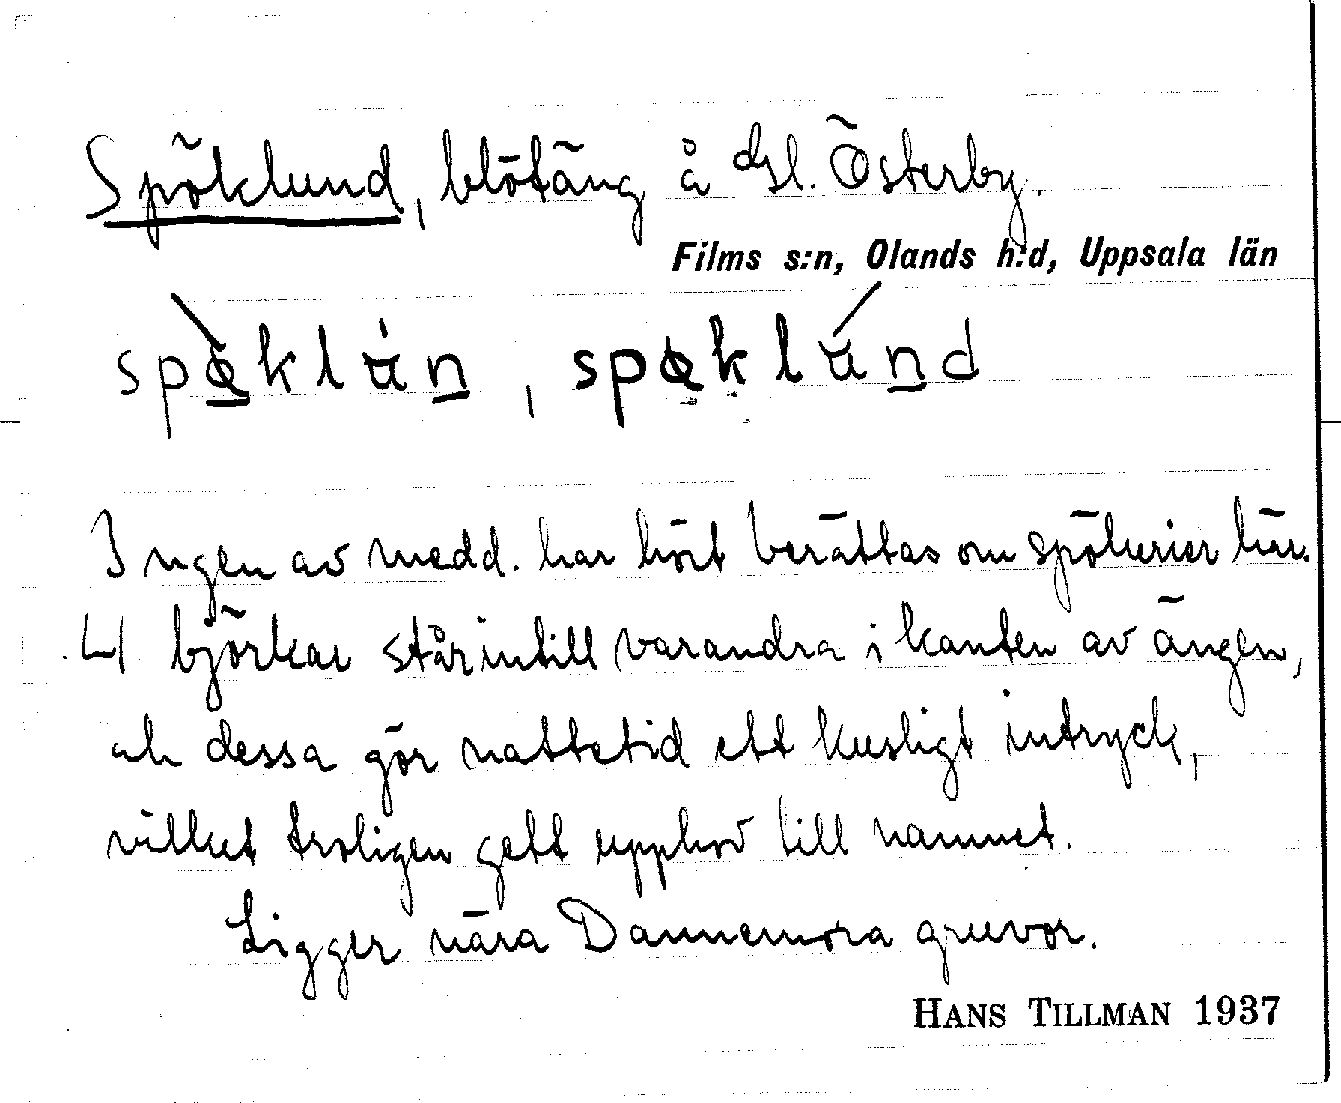 Spöklund, blötäng å Gl. Österby.
Films s:n, Olands h:d, Uppsala län
Ingen av medd. har hört berättas om spökerier här.
4 björkar står intill varandra i kanten av ängen,
och dessa gör nattetid ett kusligt intryck,
vilket troligen gett upphov till namnet.
Ligger nära Dannemora gruvor.
HANS TILLMAN 1937